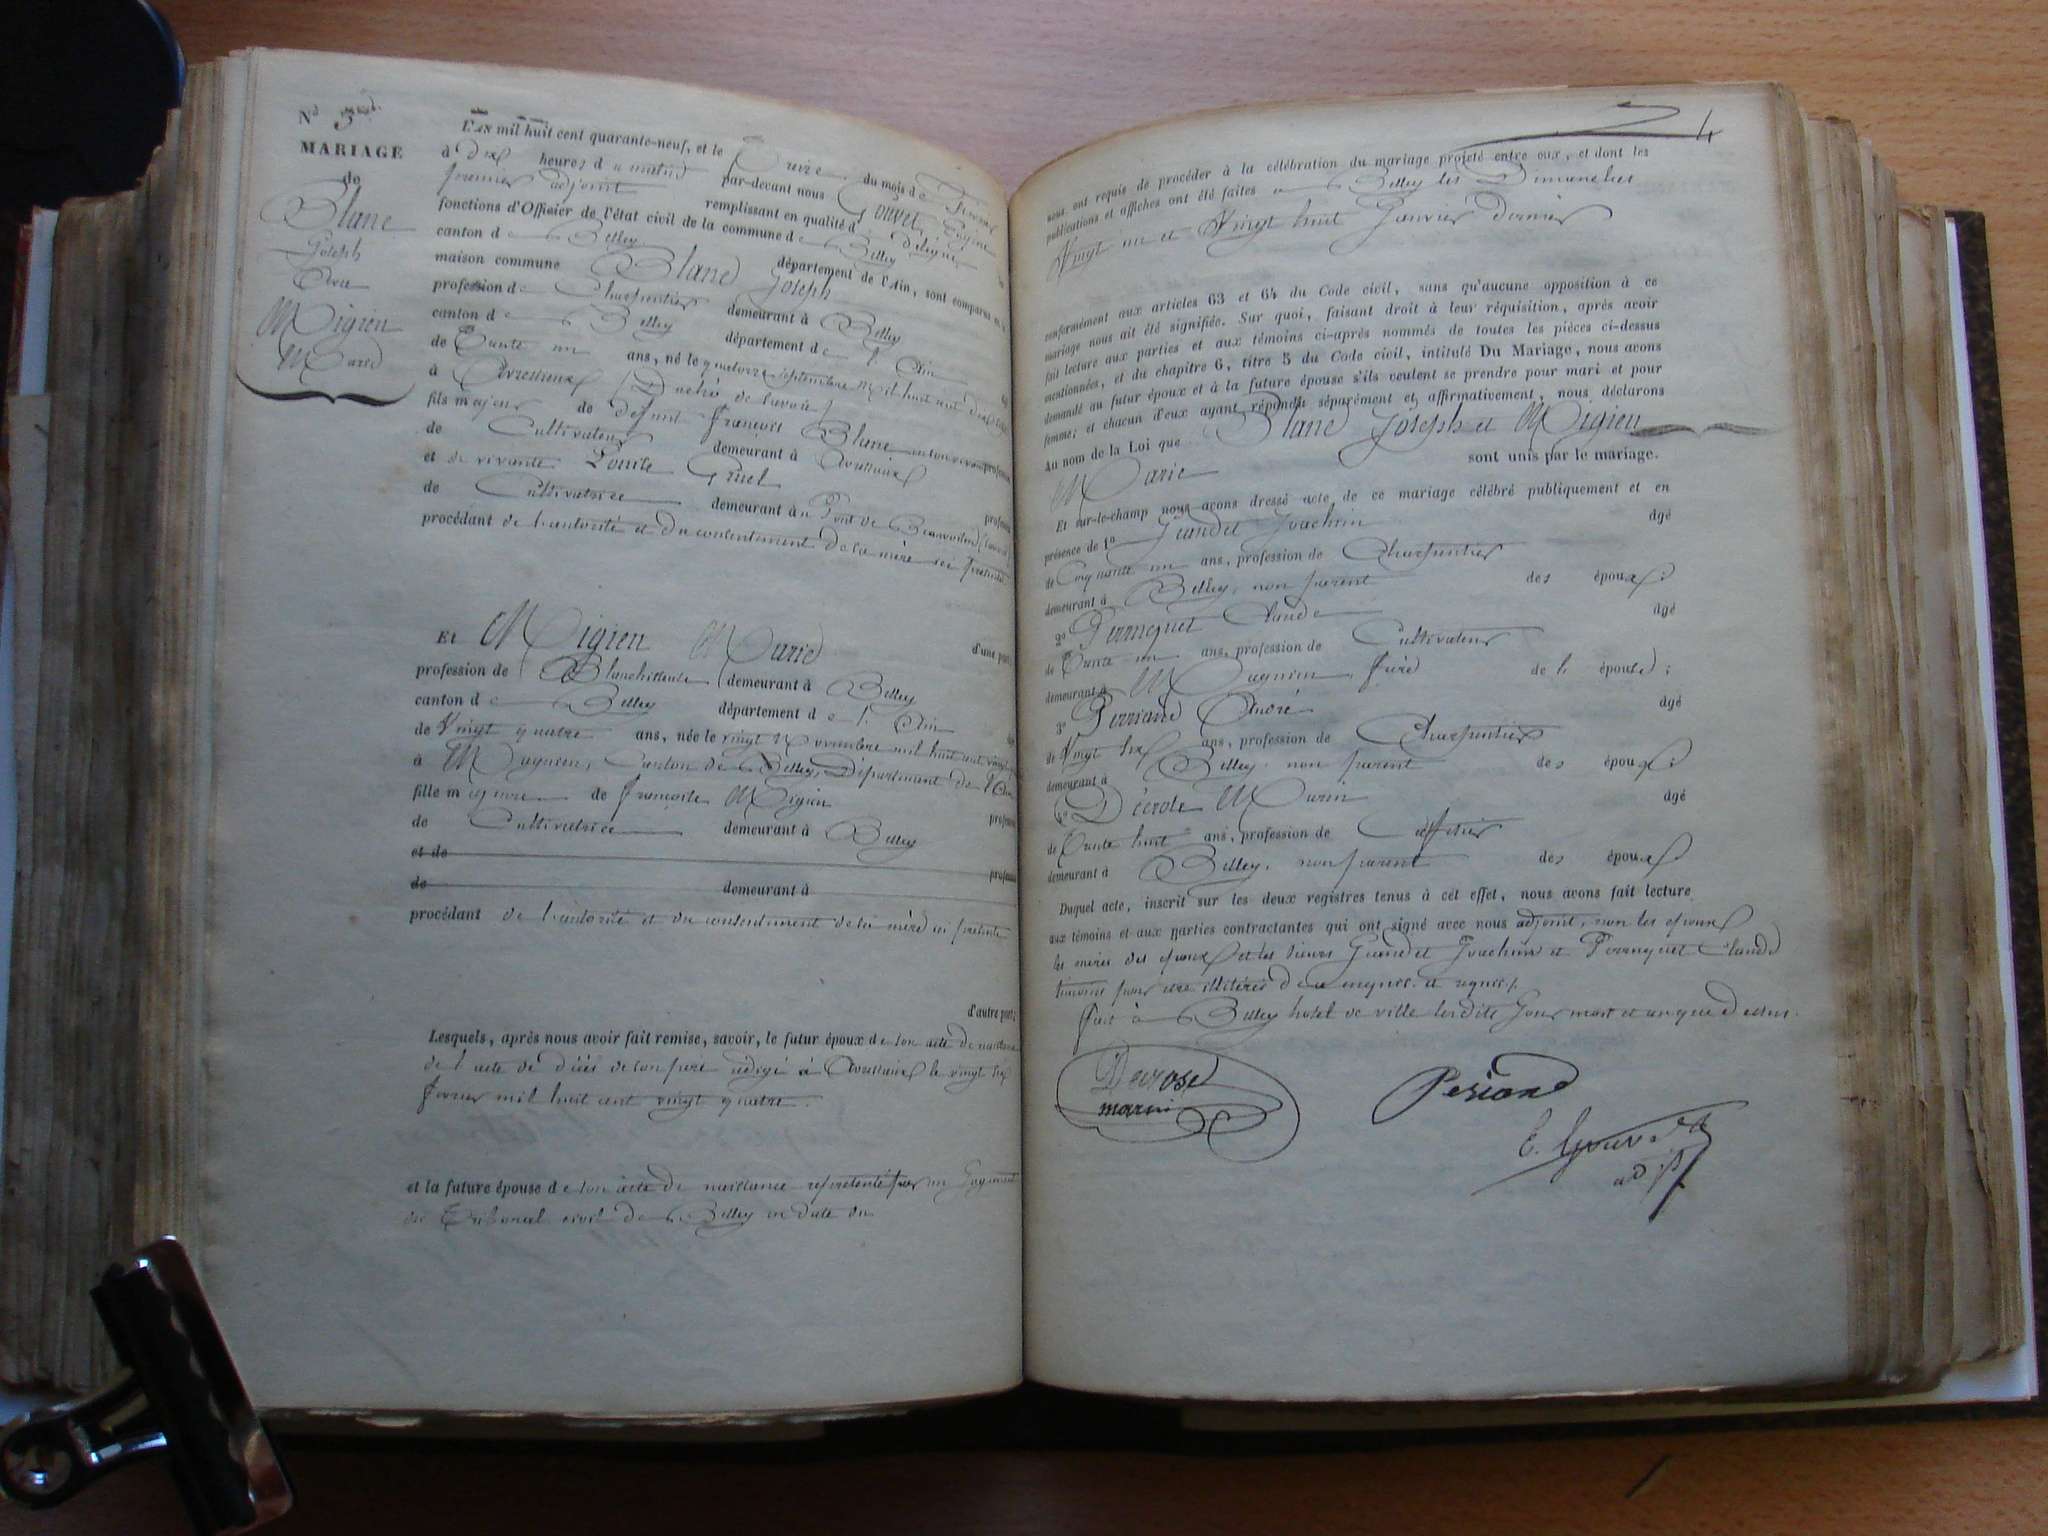 No
MARIAGE
de
Blanc
Joseph
Avec
Migien
Marie
L'AN mil huit cent quarante-neuf, et le Treize du mois de Février
à Dix heures du matin par-devant nous Gouvet, Eugène
premier adjoint remplissant en qualité d délégué les
fonctions d'Offisier de l'état civil de la commune de Belley
canton de Belley département de l'Ain, sont comparus en la
maison commune Blanc Joseph
profession de Charpentier demeurant à Belley
canton de Belley département de l'Ain
de Trente un ans, né le quatorze septembre mil huit cent dix sept
à Avressieux (Duché de Savoie)
fils majeur de defunt François Blanc
de Cultivateur demeurant à
et de vivante Louise Gruel
de Cultivatrice demeurant au Pont de Beauvoisin (Savoie)
procédant de l'autorité et du consentement de la mère ici présente
d'une part;
Et Migien Marie
profession de Blanchisseuse demeurant à Belley
canton de Belley département de l'Ain
de Vingt quatre ans, née le vingt Novembre mil huit cent vingt
à Magnieu, Canton de Belley, Département de l'Ain
fille majeure de françoise Migien
de Cultivatrice demeurant à Belley
et de
de demeurant à
procédant de l'autorité et du consentement de la mère ici présente
d'autre part;
Lesquels, après nous avoir fait remise, savoir, le futur époux de son acte de naissance
de l'acte de décès de son père rédigé à le vingt six
février mil huit cent vingt quatre.
et la future épouse de son acte de naissance représenté par un Jugement
du Tribunal civil de Belley en date du
4
nous ont requis de procéder à la célébration du mariage projeté entre eux, et dont les
publications et affiches ont été faites à Belley les Dimanches
Vingt un et Vingt huit Janvier dernier
conformément aux articles 63 et 64 du Code civil, sans qu'aucune opposition à ce
mariage nous ait été signifiée. Sur quoi, faisant droit à leur réquisition, après avoir
fait lecture aux parties et aux témoins ci-après nommés de toutes les pièces ci-dessus
mentionnées, et du chapitre 6, titre 5 du Code civil, intitulé Du Mariage, nous avons
demandé au futur époux et à la future épouse s'ils veulent se prendre pour mari et pour
femme; et chacun d'eux ayant répondu séparément et affirmativement, nous déclarons
Au nom de la Loi que Blanc Joseph et Migien
Marie sont unis par le mariage.
Et sur-le-champ nous avons dressé acte de ce mariage célébré publiquement et en
présence de 1o Jeandet Joachim âgé
de Cinquante un ans, profession de Charpentier
demeurant à Belley, non parent des époux;
2o Perruquet Claude âgé
de Trente un ans, profession de Cultivateur
demeurant à Magnieu, frère de l'épouse;
3o Perriand André âgé
de Vingt six ans, profession de Charpentier
demeurant à Belley, non parent des époux;
4o Décrose Marin âgé
de Trente huit ans, profession de Caffetier
demeurant à Belley, non parent des époux
Duquel acte, inscrit sur les deux registres tenus à cet effet, nous avons fait lecture
aux témoins et aux parties contractantes qui ont signé avec nous adjoint, non les époux
les mères des époux et les sieurs Jeandet Joachim et Perruquet Claude
témoins pour être illitérés de ce enquis et requis.
Fait à Belley hotel de ville lesdits Jour mois et an que dessus.
Decrose
marin
Perian
E. Gouvet
adjt